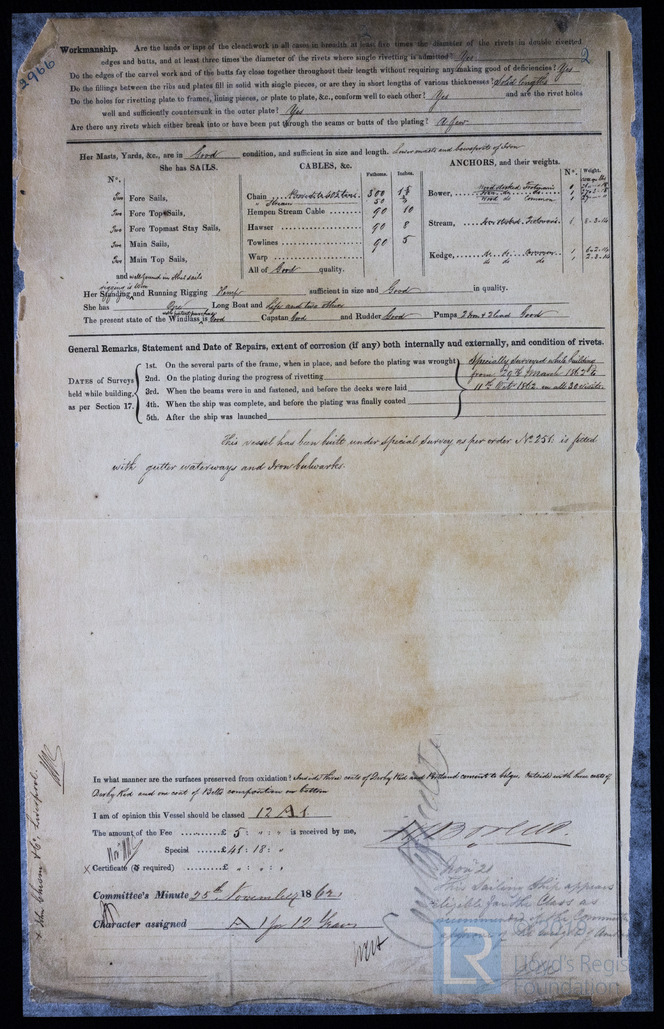 2966
2
Workmanship. Are the lands or laps of the clenchwork in all cases in breadth at least five times the diameter of the rivets in double rivetted
edges and butts, and at least three times the diameter of the rivets where single rivetting is admitted? Yes
Do the edges of the carvel work and of the butts fay close together throughout their length without requiring any making good of deficiencies? Yes
Do the fillings between the ribs and plates fill in solid with single pieces, or are they in short lengths of various thicknesses? Solid lengths
Do the holes for rivetting plate to frames, lining pieces, or plate to plate, &c., conform well to each other? Yes and are the rivet holes
well and sufficiently countersunk in the outer plate? Yes
Are there any rivets which either break into or have been put through the seams or butts of the plating? A few
Her Masts, Yards, &c., are in Good condition, and sufficient in size and length. Lower masts and bowsprits of Iron
She has SAILS. CABLES, &c. ANCHORS, and their weights.
Nº. Fathoms. Inches. Nº. Weight.
Two Fore Sails,
Two Fore Top Sails,
Two Fore Topmast Stay Sails,
Two Main Sails,
Two Main Top Sails,
and well found in other sails
Chain 300
Stream 50
Hempen Stream Cable 90 10
Hawser 90 8
Towlines 90 5
Warp
All of Good quality.
Bower, Wood stocked
Common
Stream, 1 8-3-14
Kedge, 1
do do do 1
rigging is Wire
Her Standing and Running Rigging Hemp sufficient in size and Good in quality.
She has One Long Boat and Life and two others
The present state of the Windlass is Good Capstan Good and Rudder Good Pumps 2 Iron & 2 Lead Good
General Remarks, Statement and Date of Repairs, extent of corrosion (if any) both internally and externally, and condition of rivets.
DATES of Surveys
held while building,
as per Section 17.
1st. On the several parts of the frame, when in place, and before the plating was wrought
2nd. On the plating during the progress of rivetting
3rd. When the beams were in and fastened, and before the decks were laid
4th. When the ship was complete, and before the plating was finally coated
5th. After the ship was launched
Specially surveyed while building
from 29th March 1862 to
11th Octr 1862 in all 30 visits
This vessel has been built under special survey as per order No 251. is fitted
with gutter waterways and Iron bulwarks.
In what manner are the surfaces preserved from oxidation? Inside three coats of Derby Red and Portland cement to bilges. Outside with three coats of
Derby Red and one coat of Bells composition on bottom
I am of opinion this Vessel should be classed 12 A 1.
The amount of the Fee ......... £ 5 : " : " is received by me,
Special ...... £ 41 : 18 : "
Certificate (if required) ...... £ " : " : "
Committee's Minute 25th November 1862
Character assigned A 1 for 12 Years
Nov 21
This Sailing Ship appears
eligible for the Class as
recommended
Liverpool.
LR
Lloyd's Register
Foundation